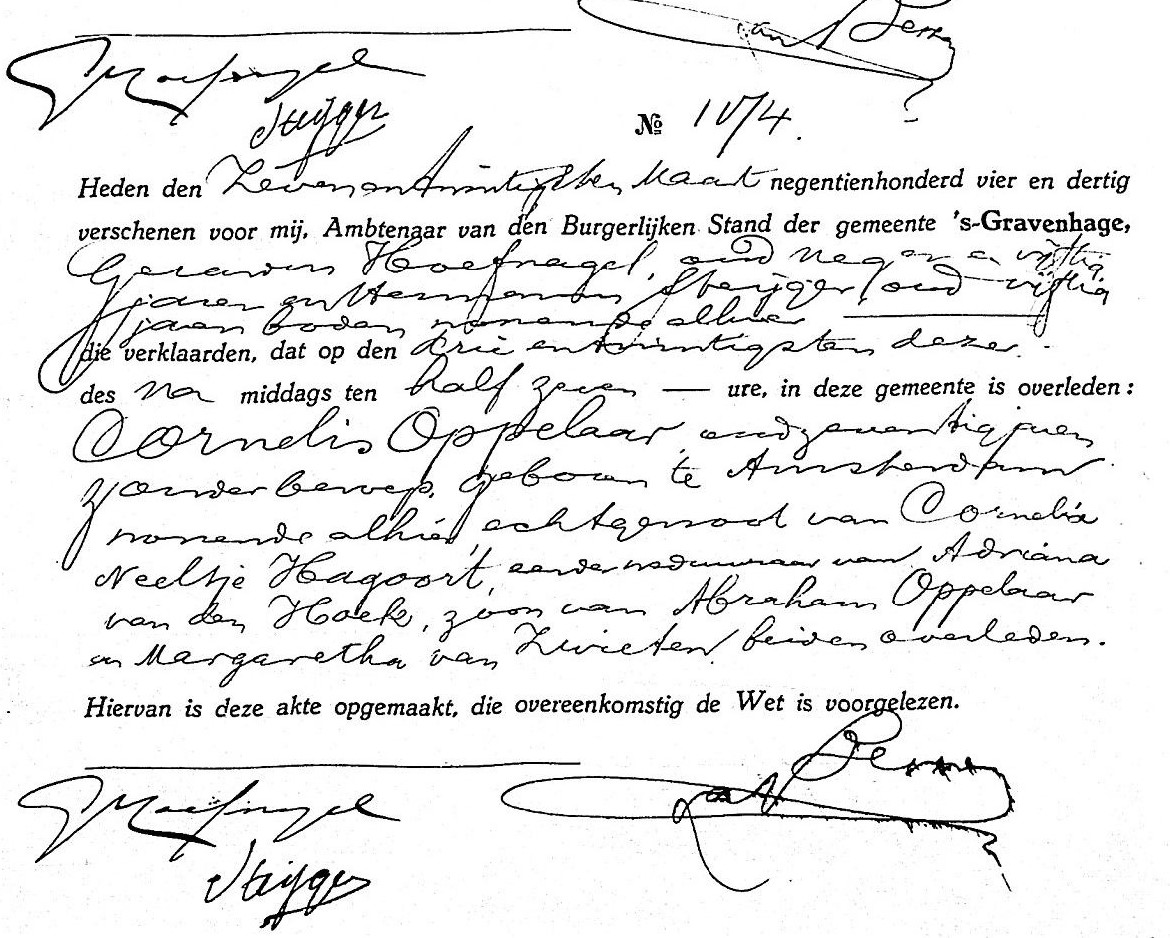 van Berk
Hoefnagel
Steijger
№ 1074.
Heden den Zevenentwintigsten Maart negentienhonderd vier en dertig
verschenen voor mij, Ambtenaar van den Burgerlijken Stand der gemeente 's-Gravenhage,
Gerardus Hoefnagel, oud negen en vijftig
jaren en Hermanus Steijger, oud vijftig
jaren boden wonende alhier
die verklaarden, dat op den drie entwintigsten dezer.
des na middags ten half zeven — ure, in deze gemeente is overleden:
Cornelis Oppelaar, oud zeventig jaren
zonder beroep, geboren te Amsterdam
wonende alhier, echtgenoot van Cornelia
Neeltje Hagoort, eerder weduwnaar van Adriana
van den Hoek, zoon van Abraham Oppelaar
en Margaretha van Zwieten, beiden overleden.
Hiervan is deze akte opgemaakt, die overeenkomstig de Wet is voorgelezen.
Hoefnagel
Steijger